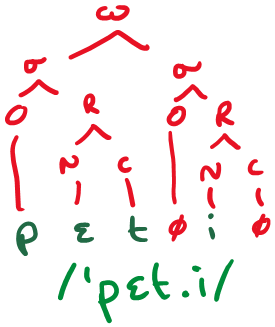 ω
σ σ
O R O R
N C N C
p ɛ t ∅ i ∅
/ˈpɛt.i/